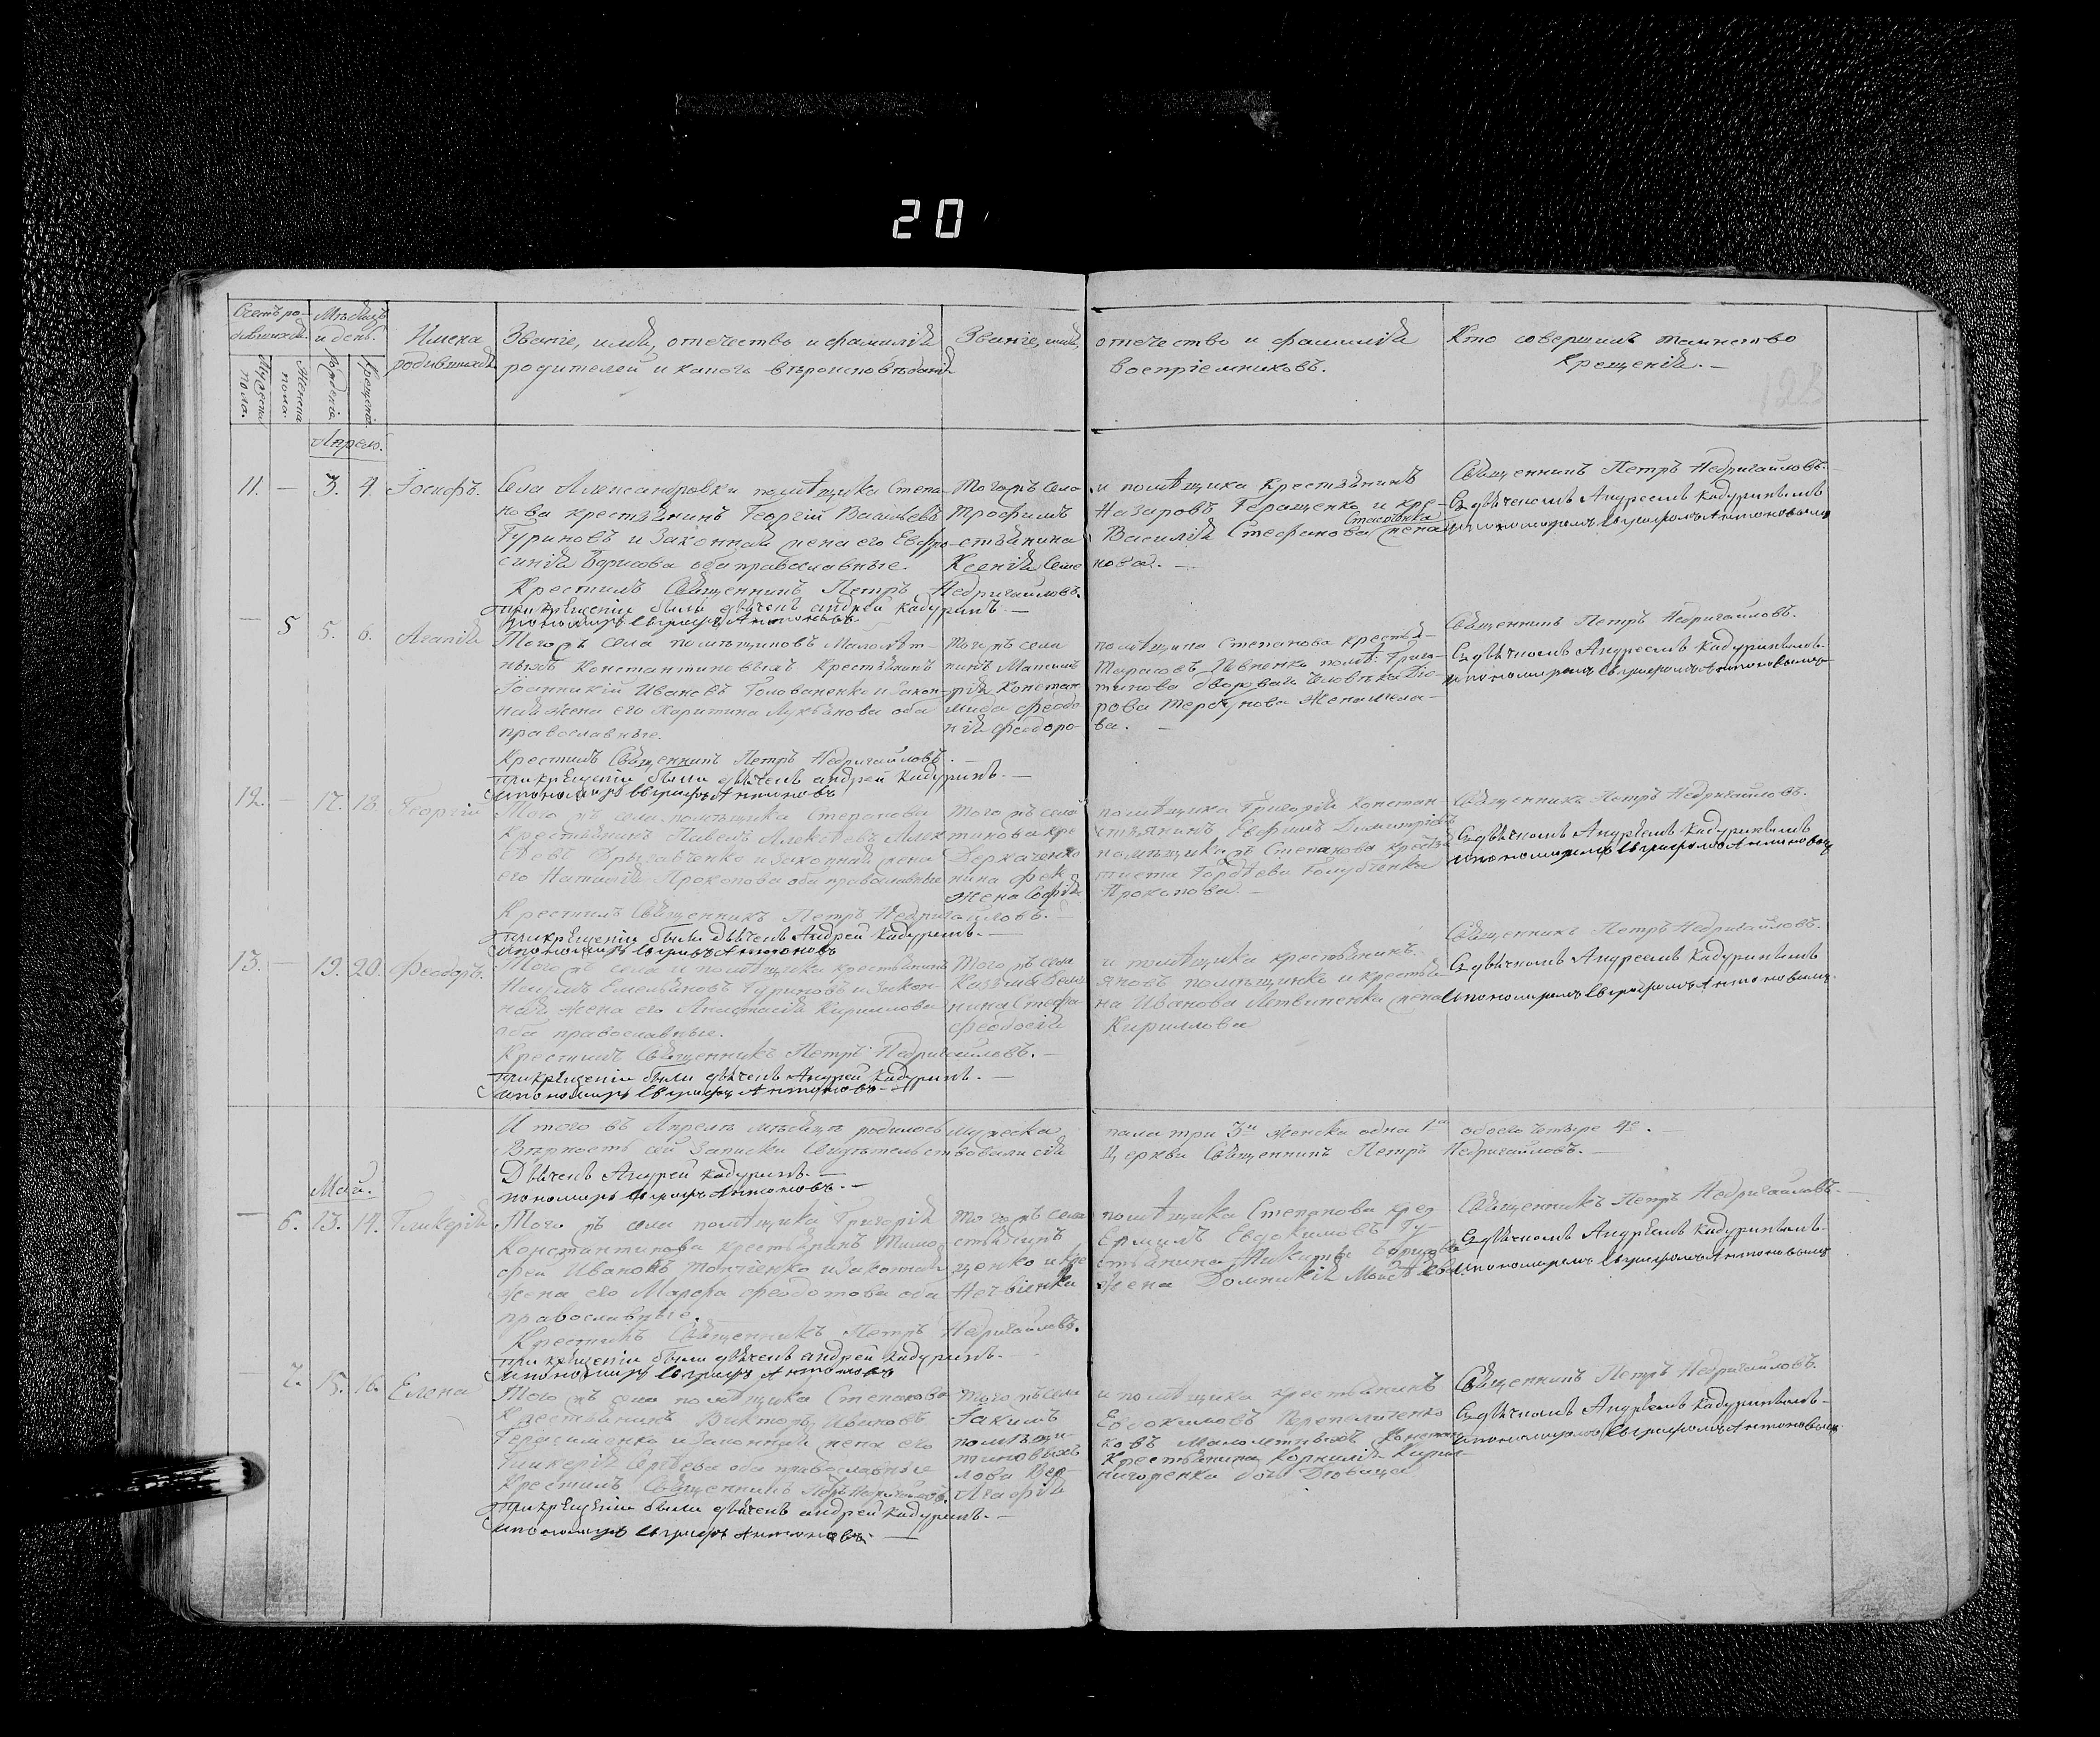 20
Счетъ ро-
дившихся.
Мѣсяцъ
и день.
Мужеска
пола.
Женска
пола.
Рожденія.
Крещенія.
Имена
родившихся
Званіе, имя, отечество и фамилія
родителей и какого вѣроисповѣданія
Званіе, имя, отечество и фамилія
воспріемниковъ.
Кто совершилъ таинство
крещенія.
122
Апрель.
11. — 3. 4. Іосифъ.
Села Александровки помѣщика Степа-
нова крестьянинъ Георгій Васильевъ
Гуриновъ и законная жена его Евфро-
синія Борисова оба православные.
Крестилъ Священникъ Петръ Недригайловъ.
При крещеніи были дьяченъ андрей Кадуринъ.—
и пономарь Евграфъ Антоновъ.
Тогожъ села и помѣщика крестьянинъ
Трофимъ Назаровъ Геращенко и кре-
стьянина Василія Стефанова жена
Ксенія Семе нова. —
Священникъ Петръ Недригайловъ.
Съ дьячкомъ Андреемъ Кадуринымъ
и пономаремъ Евграфомъ Антоновымъ
— 5 5. 6. Агапія
Тогожъ села помѣщиковъ Малолѣт-
ныхъ Константиновыхъ крестьянинъ
Іоанникій Ивановъ Голованенко и закон-
ная жена его Харитина Лукьянова оба
православные.
Крестилъ Священникъ Петръ Недригайловъ.—
При крещеніи были дьяченъ андрей Кадуринъ.—
и пономарь Евграфъ Антоновъ
Тогожъ села помѣщика Степанова крестья-
нинъ Максимъ Тарасовъ Певненко помѣ: Григо-
рія Констан тинова двороваго человѣка
рова жена
нія Феодоро ва. —
Священникъ Петръ Недригайловъ.
Съ дьячкомъ Андреемъ Кадуринымъ.
и пономаремъ Евграфомъ Антоновымъ
12. — 17. 18. Георгій
Того жъ села помѣщика Степанова
крестьянинъ Алексѣевъ
и законная жена
его Наталія Прокопова оба православные
Крестилъ Священникъ Петръ Недригайловъ.—
При крещеніи были дьяченъ Андрей Кадуринъ.—
и пономарь Евграфъ Антоновъ
Того жъ села помѣщика Григорія Констан-
тинова кре стьянинъ Ефимъ Димитріевъ
Деркаченко помѣщика жъ Степанова крестья
нина Фек тиста Гордѣева Голубченка
жена Софія Прокопова.—
Священникъ Петръ Недригайловъ.
Съ дьячкомъ Андрѣемъ Кадуринымъ
и пономаремъ Евграфомъ Антоновымъ
13. — 19. 20. Феодоръ.
Того жъ села и помѣщика крестьянинъ
Емельяновъ Гуриновъ и закон-
ная жена его Анастасія Кириллова
оба православные.
Крестилъ Священникъ Петръ Недригайловъ.—
При крещеніи были дьяченъ Андрей Кадуринъ.—
и пономарь Евграфъ Антоновъ.
Того жъ села и помѣщика крестьянинъ.
Козьма и крестья-
нина Стефа на Иванова Литвиненка жена
Феодосія Кириллова
Священникъ Петръ Недригайловъ.
Съ дьячкомъ Андреемъ Кадуринымъ
и пономаремъ Евграфомъ Антоновымъ.
Итого въ Апрелѣ мѣсяцѣ родилось мужеска пала три 3ʰ женска одна 1ᵃ обоего четыре 4ᵉ.—
Вѣрность сей записки свидѣтельствовали сія Церкви Священникъ Петръ Недригайловъ.—
Дьяченъ Андрей Кадуринъ.—
пономарь Евграфъ Антоновъ.—
Май.
— 6. 13. 14. Гликерія
Того жъ села помѣщика Григорія
Константинова крестьянинъ Тимо-
фей Ивановъ и законная
жена его Марфа Феодотова оба
православные.
Крестилъ Священникъ Петръ Недригайловъ.
При крещеніи были дьяченъ андрей Кадуринъ.
и пономарь Евграфъ Антоновъ
Тогожъ села помѣщика Степанова кре
стьянинъ Ермилъ Евдокимовъ Гу-
щенко и кре стьянина Никиты
жена Домникія
Священникъ Петръ Недригайловъ.
Съ дьячкомъ Андрѣемъ Кадуринымъ.
и пономаремъ Евграфомъ Антоновымъ
— 7. 15. 16. Елена
Того жъ села помѣщика Степанова
Крестьянинъ Викторъ Ивановъ
Герасименко и законная жена его
Гликерія Сергѣева оба православные
Крестилъ Священникъ Петръ Недригайловъ.
При крещеніи были дьяченъ андрей Кадуринъ.—
и пономарь Евграфъ Антоновъ.—
Того жъ села и помѣщика крестьянинъ
Іакимъ Евдокимовъ
помѣщи- ковъ Малолетныхъ Констан-
тиновыхъ крестьянина Корнилія Кирил-
лова дочь Девица
Агафія
Священникъ Петръ Недригайловъ.
Съ дьячкомъ Андрѣемъ Кадуринымъ.
и пономаремъ Евграфомъ Антоновымъ